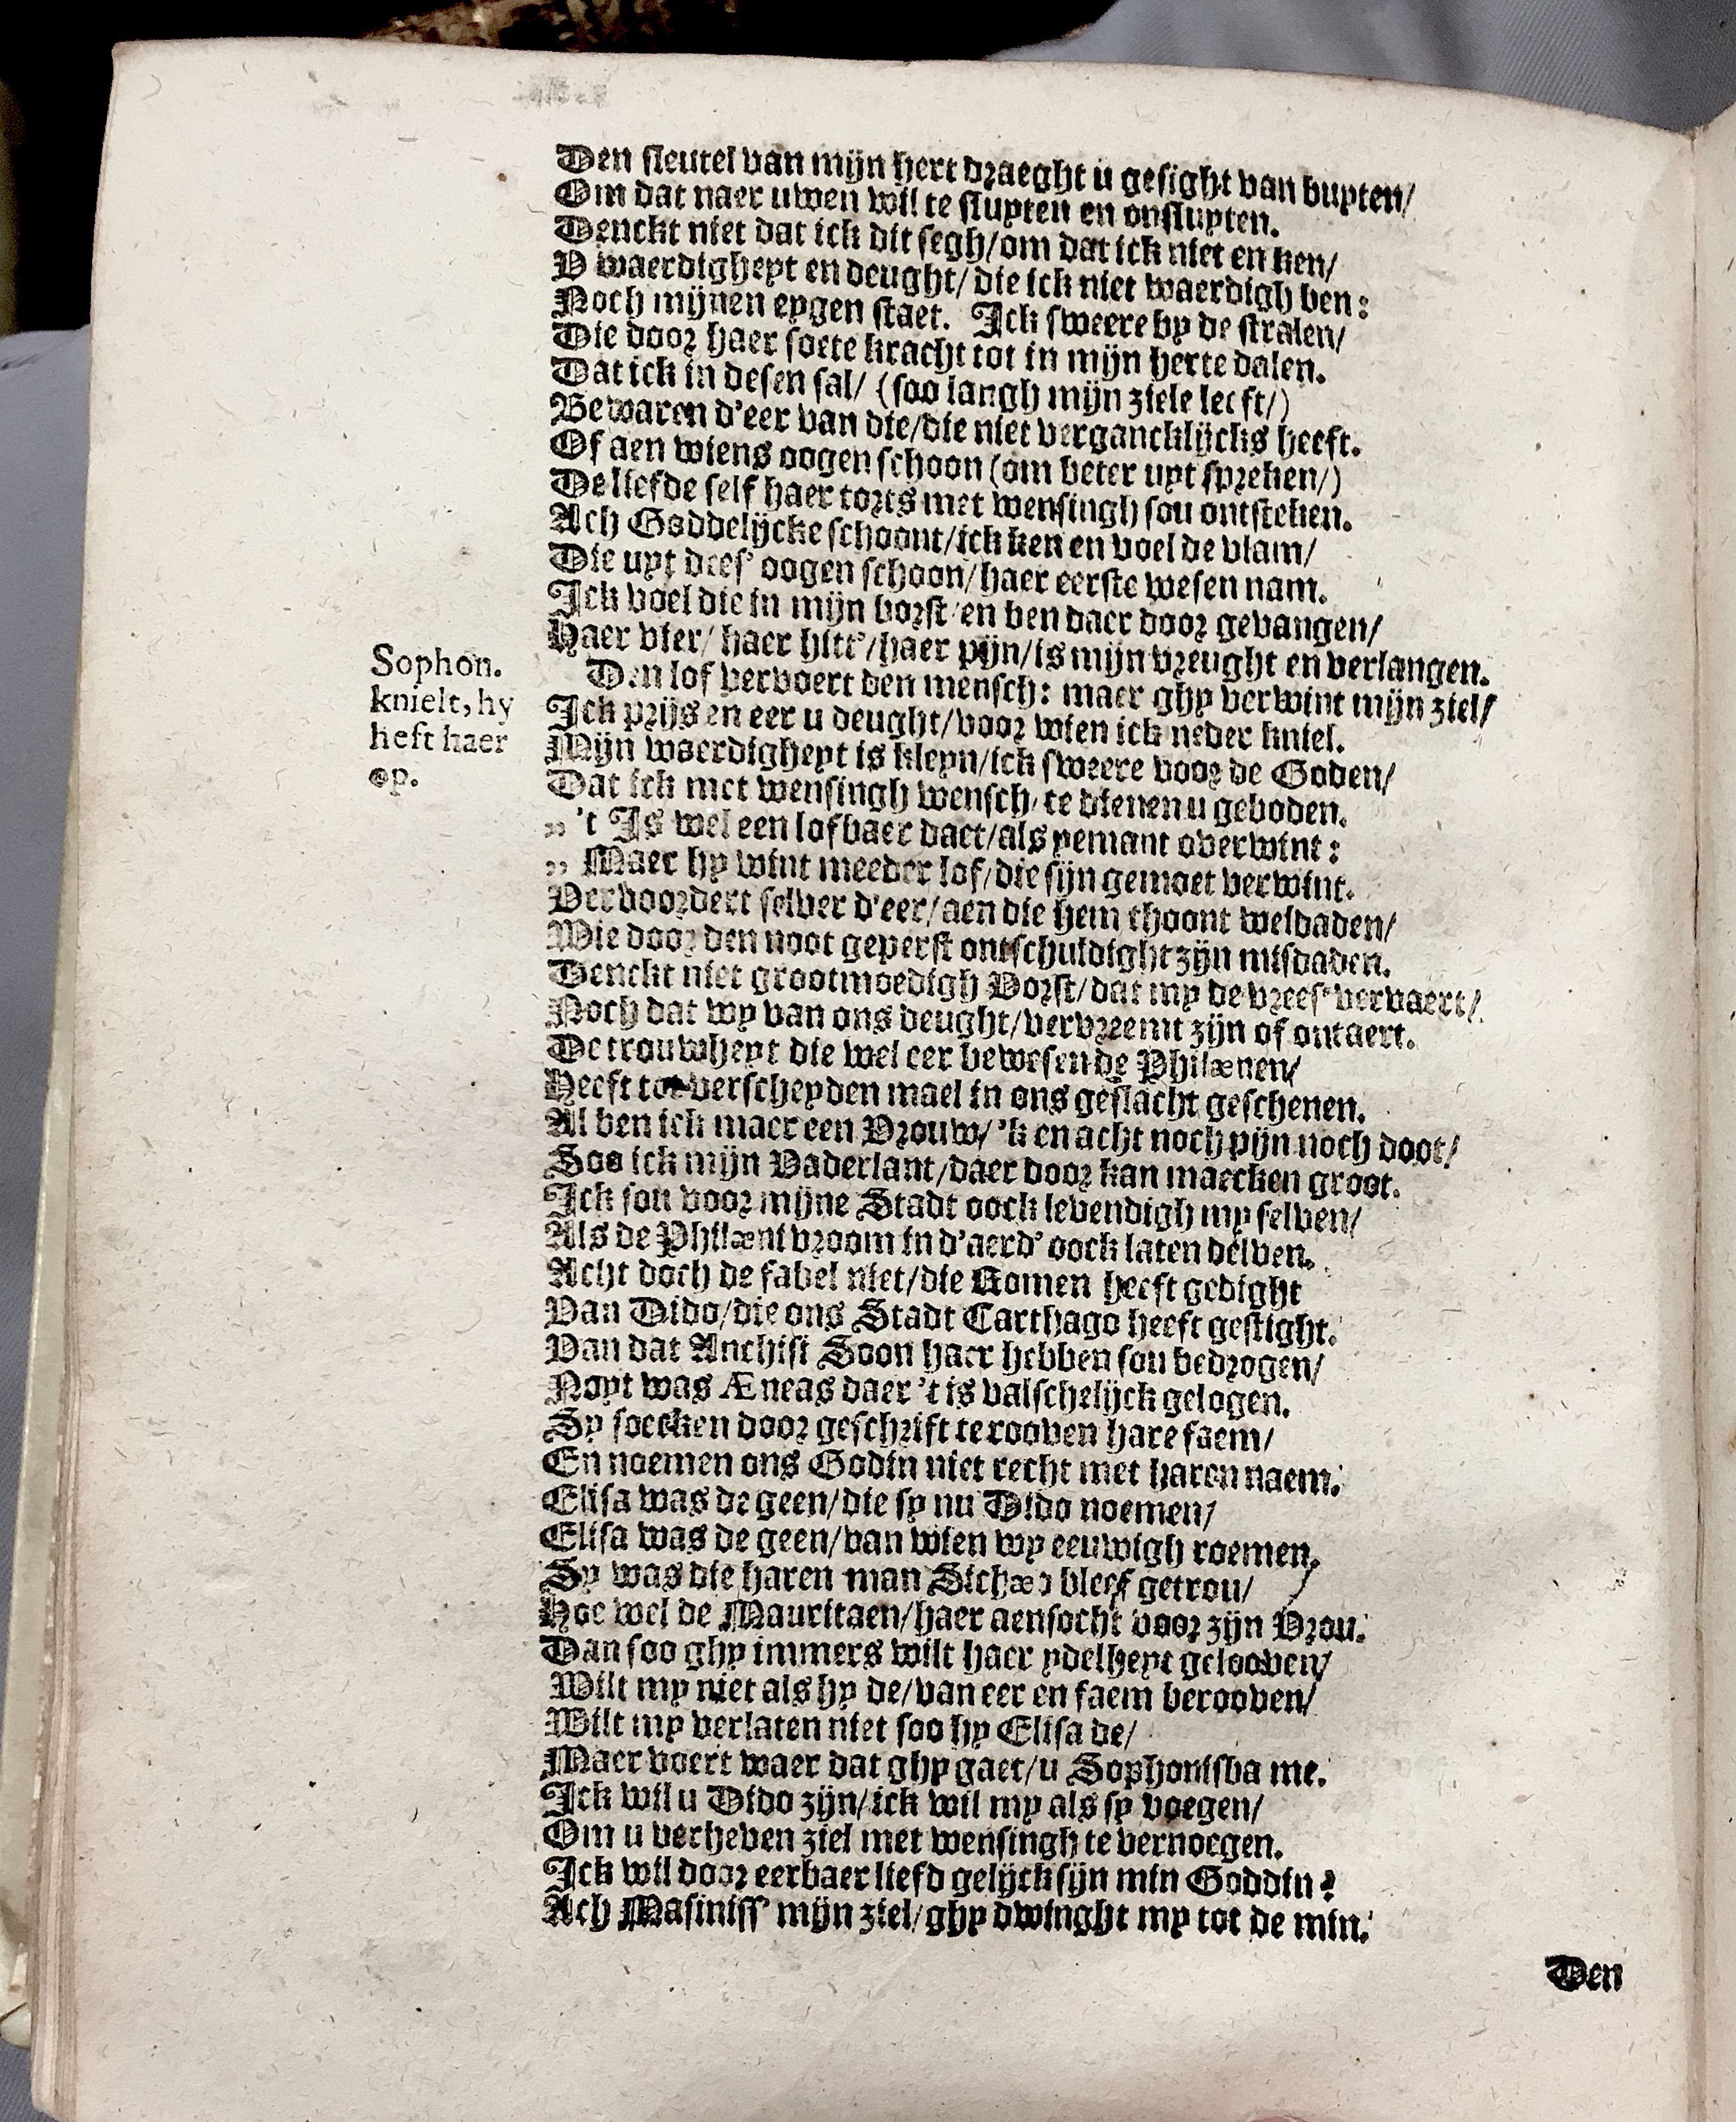 Den sleutel van mijn hert draeght u gesight van buyten/
Om dat naer uwen wil te sluyten en onsluyten.
Denckt niet dat ick dit segh/om dat ick niet en ken/
V waerdigheyt en deught/ die ick niet waerdigh ben:
Noch mijnen eygen staet. Ick sweere by de stralen/
Die door haer soete kracht tot in mijn herte dalen.
Dat ick in desen sal/ (soo langh mijn ziele leeft/)
Bewaren d'eer van die/die niet vergancklijcks heeft.
Of aen wiens oogen schoon (om beter uyt spreken/)
De liefde self haer torts met wensingh sou ontsteken.
Ach Goddelijcke schoont/ick ken en voel de vlam/
Die uyt dees' oogen schoon/haer eerste wesen nam.
Ick voel die in mijn borst/en ben daer door gevangen/
Haer vier/ haer hitt'/haer pijn/is mijn vreught en verlangen.
Sophon.
knielt, hy
heft haer
op.
Den lof vervoert den mensch: maer ghy verwint mijn ziel/
Ick prijs en eer u deught/voor wien ick neder kniel.
Mijn waerdigheyt is kleyn/ick sweere voor de Goden/
Dat ick met wensingh wensch/te dienen u geboden.
„ 't Is wel een lofbaer daet/als yemant overwint:
„ Maer hy wint meeder lof/die sijn gemoet verwint.
Vervoordert selver d'eer/aen die hem thoont weldaden/
Wie door den noot geperst ontschuldight zijn misdaden.
Denckt niet grootmoedigh Vorst/dat my de vrees' vervaert/
Noch dat wy van ons deught/vervreemt zijn of ontaert.
De trouwheyt die wel eer bewesen de Philænen/
Heeft tot verscheyden mael in ons geslacht geschenen.
Al ben ick maer een Vrouw/'k en acht noch pijn noch doot/
Soo ick mijn Vaderlant/daer door kan maecken groot.
Ick sou voor mijne Stadt oock levendigh my selven/
Als de Philæni vroom in d'aerd' oock laten delven.
Acht doch de fabel niet/die Romen heeft gedight
Van Dido/die ons Stadt Carthago heeft gestight.
Van dat Anchisi Soon haer hebben sou bedrogen/
Noyt was Æneas daer 't is valschelijck gelogen.
Sy soecken door geschrift te rooven hare faem/
En noemen ons Godin niet recht met haren naem.
Elisa was de geen/die sy nu Dido noemen/
Elisa was de geen/van wien wy eeuwigh roemen.
Sy was die haren man Sichæo bleef getrou/
Hoe wel de Mauritaen/haer aensocht voor zijn Vrou.
Dan soo ghy immers wilt haer ydelheyt gelooven/
Wilt my niet als hy de/van eer en faem berooven/
Wilt my verlaten niet soo hy Elisa de/
Maer voert waer dat ghy gaet/u Sophonisba me.
Ick wil u Dido zijn/ick wil my als sy voegen/
Om u verheven ziel met wensingh te vernoegen.
Ick wil door eerbaer liefd gelijck sijn min Goddin?
Ach Masiniss' mijn ziel/ghy dwinght my tot de min.
Den